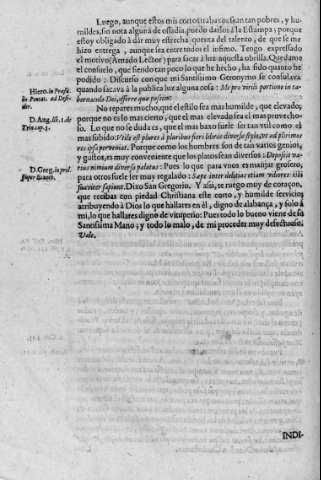 Luego, aunque estos mis cortos trabajos sean tan pobres, y hu-
mildes, sin nota alguna de ossadia puedo darlos a la Estampa; porque
estoy obligado à dar muy estrecha quenta del talento, de que se me
hizo entrega, aunque sea entre todos el infimo. Tengo expressado
el motivo (Amado Lector) para sacar à luz aquesta obrilla. Quedame
el consuelo, que siendo tan poco lo que he hecho, ha sido quanto he
podido: Discurso que mi Santissimo Geronymo se consolava
quando sacava à la publica luz alguna cosa: Me pro virili portione in ta-
bernaculo Dei, offerre quæ possim:
No repares mucho, que el estilo sea mas humilde, que elevado;
porque no es lo mas cierto, que el mas elevado sea el mas provecho-
so. Lo que no se duda es, que el mas baxo suele ser tan vtil como el
mas subido: Vtile est plures à pluribus fieri libros diverso stylo, ut ad plurimos
res ipsa perveniat. Porque como los hombres son de tan varios genios,
y gustos, es muy conveniente que los platos sean diversos:
para otros suele ser muy regalado: Sæpe inter delicatas etiam
suaviter sapiunt, Dixo San Gregorio. Y assi, te ruego muy de coraçon,
que recibas con piedad Christiana este corto, y humilde servicio
atribuyendo à Dios lo que hallares en èl, digno de alabança, y solo à
mi, lo que hallares digno de vituperio: Pues todo lo bueno viene de su
Santissima Mano; y todo lo malo, de mi proceder muy defectuoso.
Vale.
Hiero. in Præfa.
D. Aug. lib. 1. de
Trin. cap. 3.
D. Greg. in prol.
INDI-